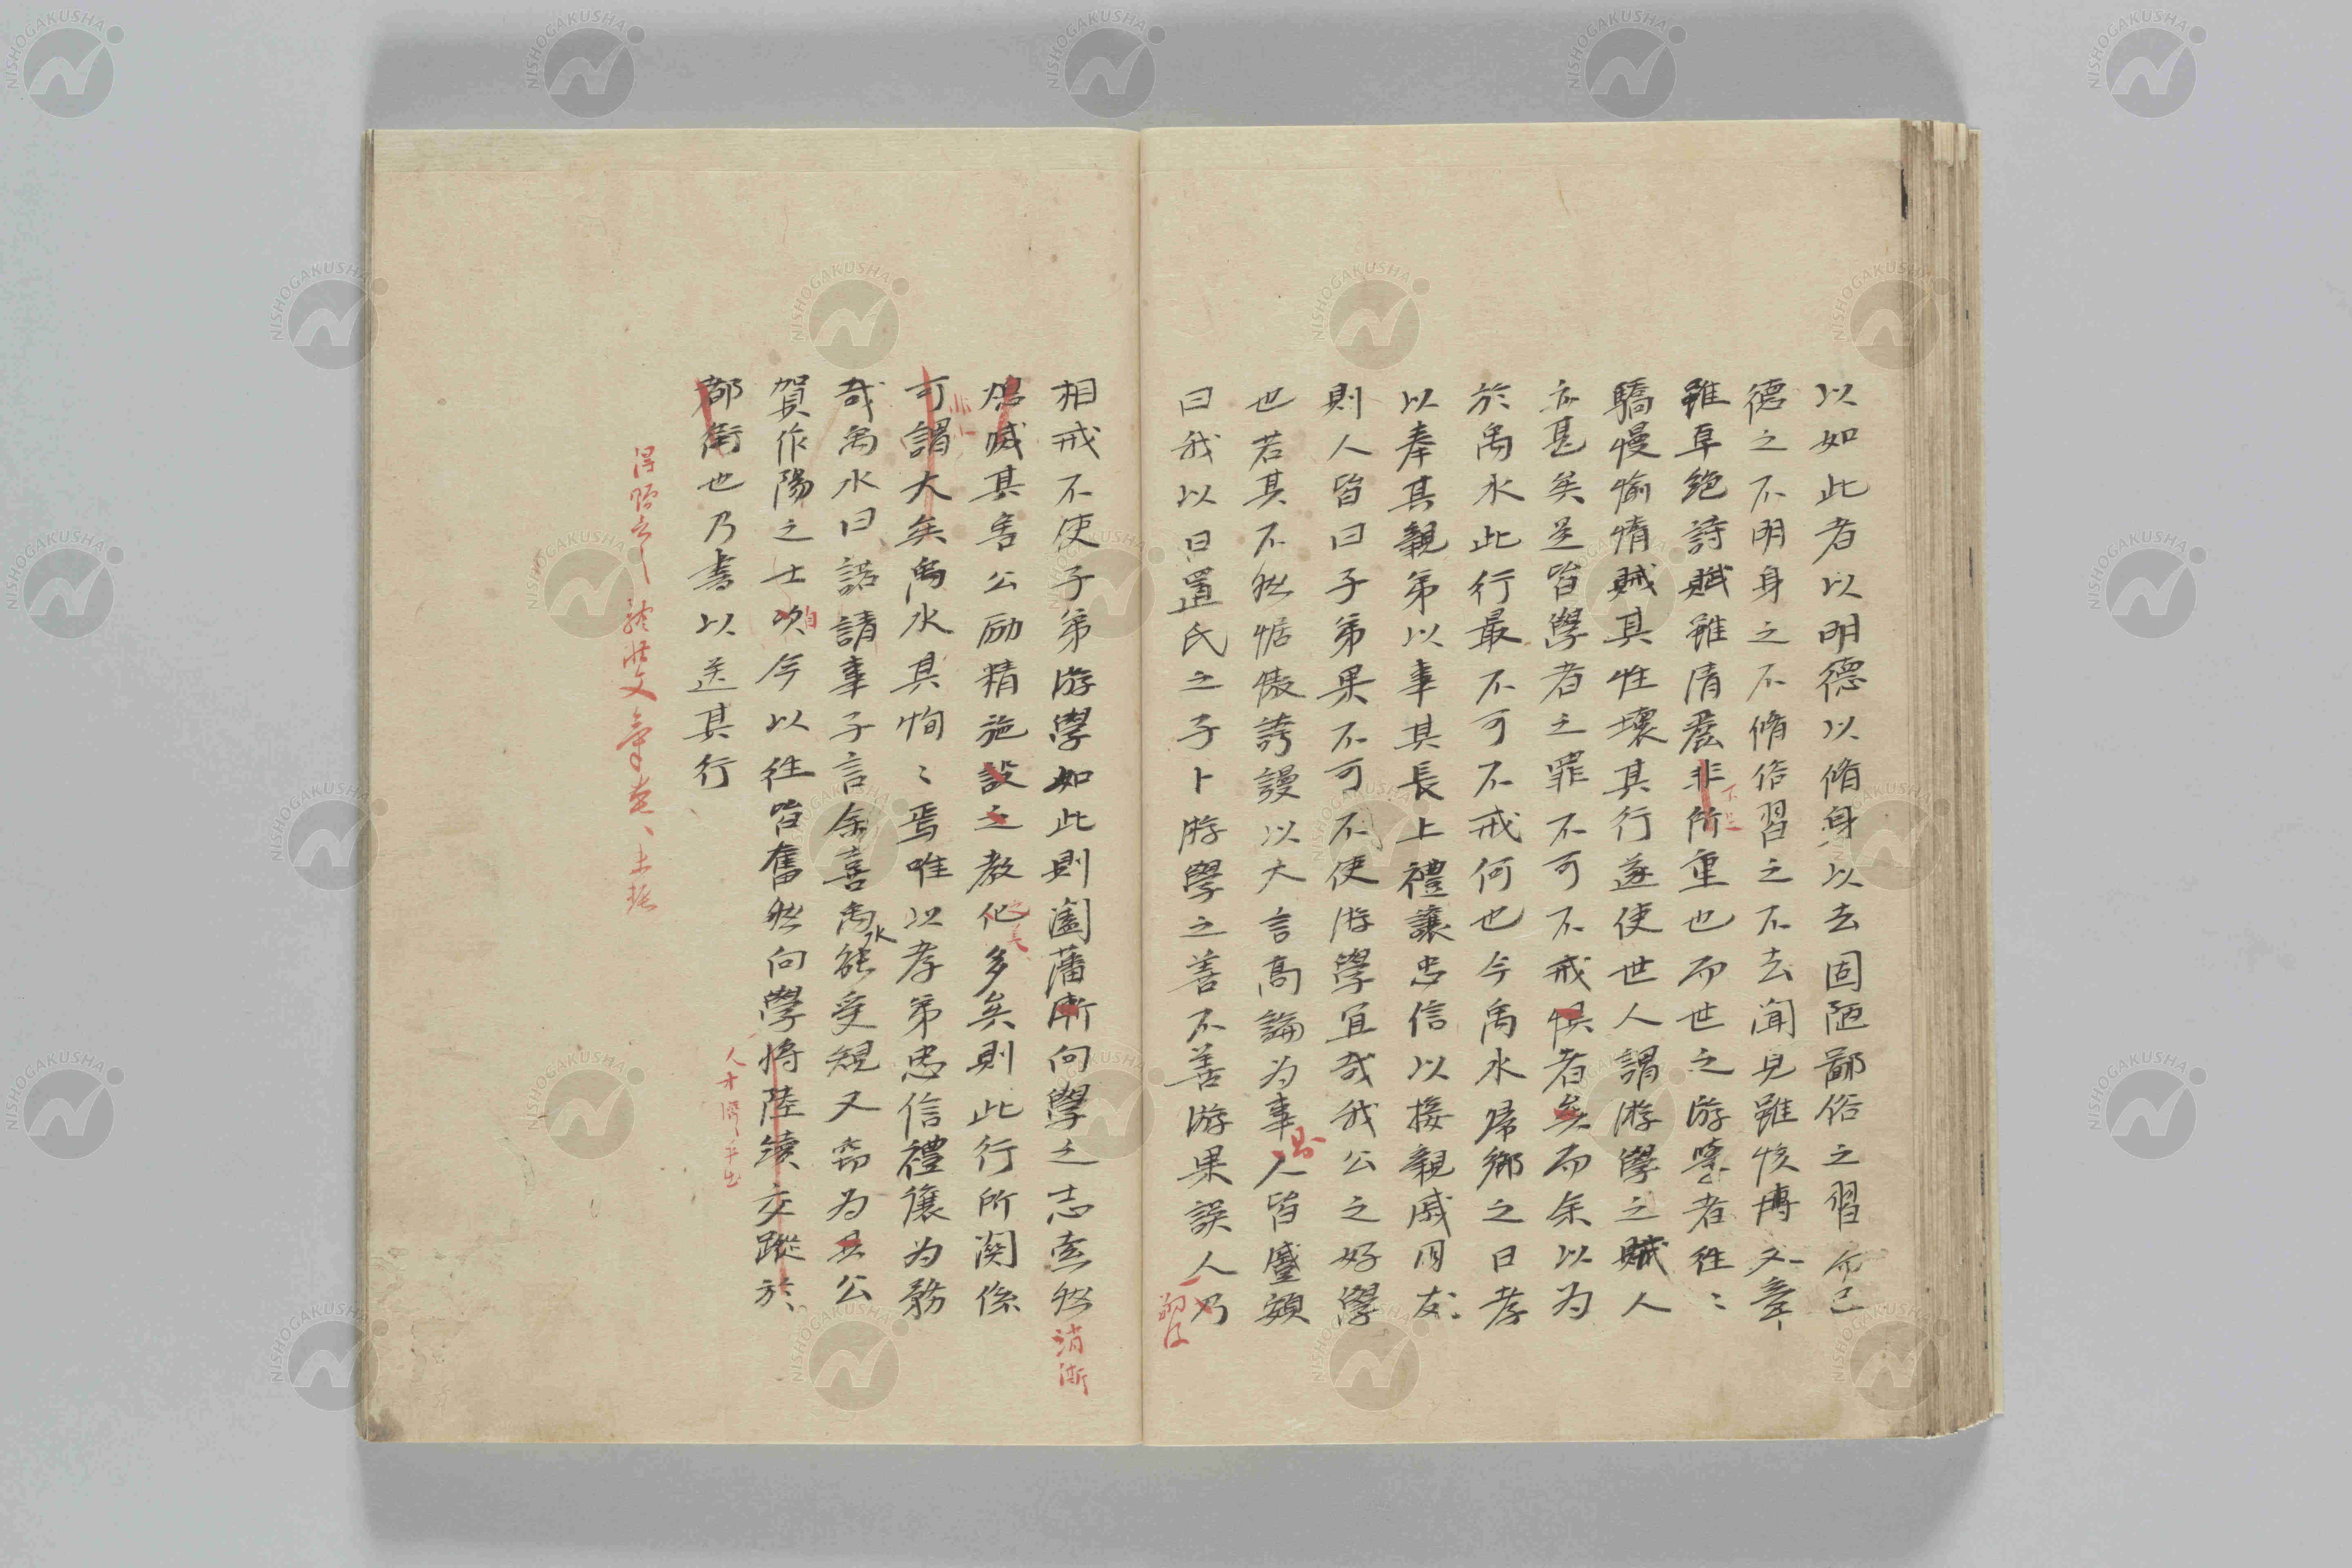 以如此者以明德以脩身以去固陋鄙俗之習而已
德之不明身之不脩俗習之不去聞見雖恢博文章
雖卓絶詩賦雖清麗非所重也而世之游學者往〻
驕慢惰其性壞其行遂使世人謂游學之賊人
亦甚矣是皆學者之罪不可不戒懼者矣而余以为
於禹水此行最不可不戒何也今禹水歸鄉之日孝
以奉其親弟以事其長上禮讓忠信以接親戚朋友
則人皆曰子弟果不可不使游學宜哉我公之好學
也若其不然倨傲誇謾以大言高論为事人皆蹙頞
曰我以曰置氏之子卜游學之善不善游果誤人乃
相戒不使子弟游學如此則闔藩漸向學之志索然
熄滅其害公励精施設之教化多矣則此行所関係
可謂大矣禹水其恂〻焉唯以孝弟忠信禮讓为務
哉禹水曰諾請事子言余喜禹水能受規又為公
賀作陽之士次今以往皆奮然向學将陸續交蹤於
都衢也乃書以送其行
不足
消漸
人才濟〻
NISHOGAKUSHA